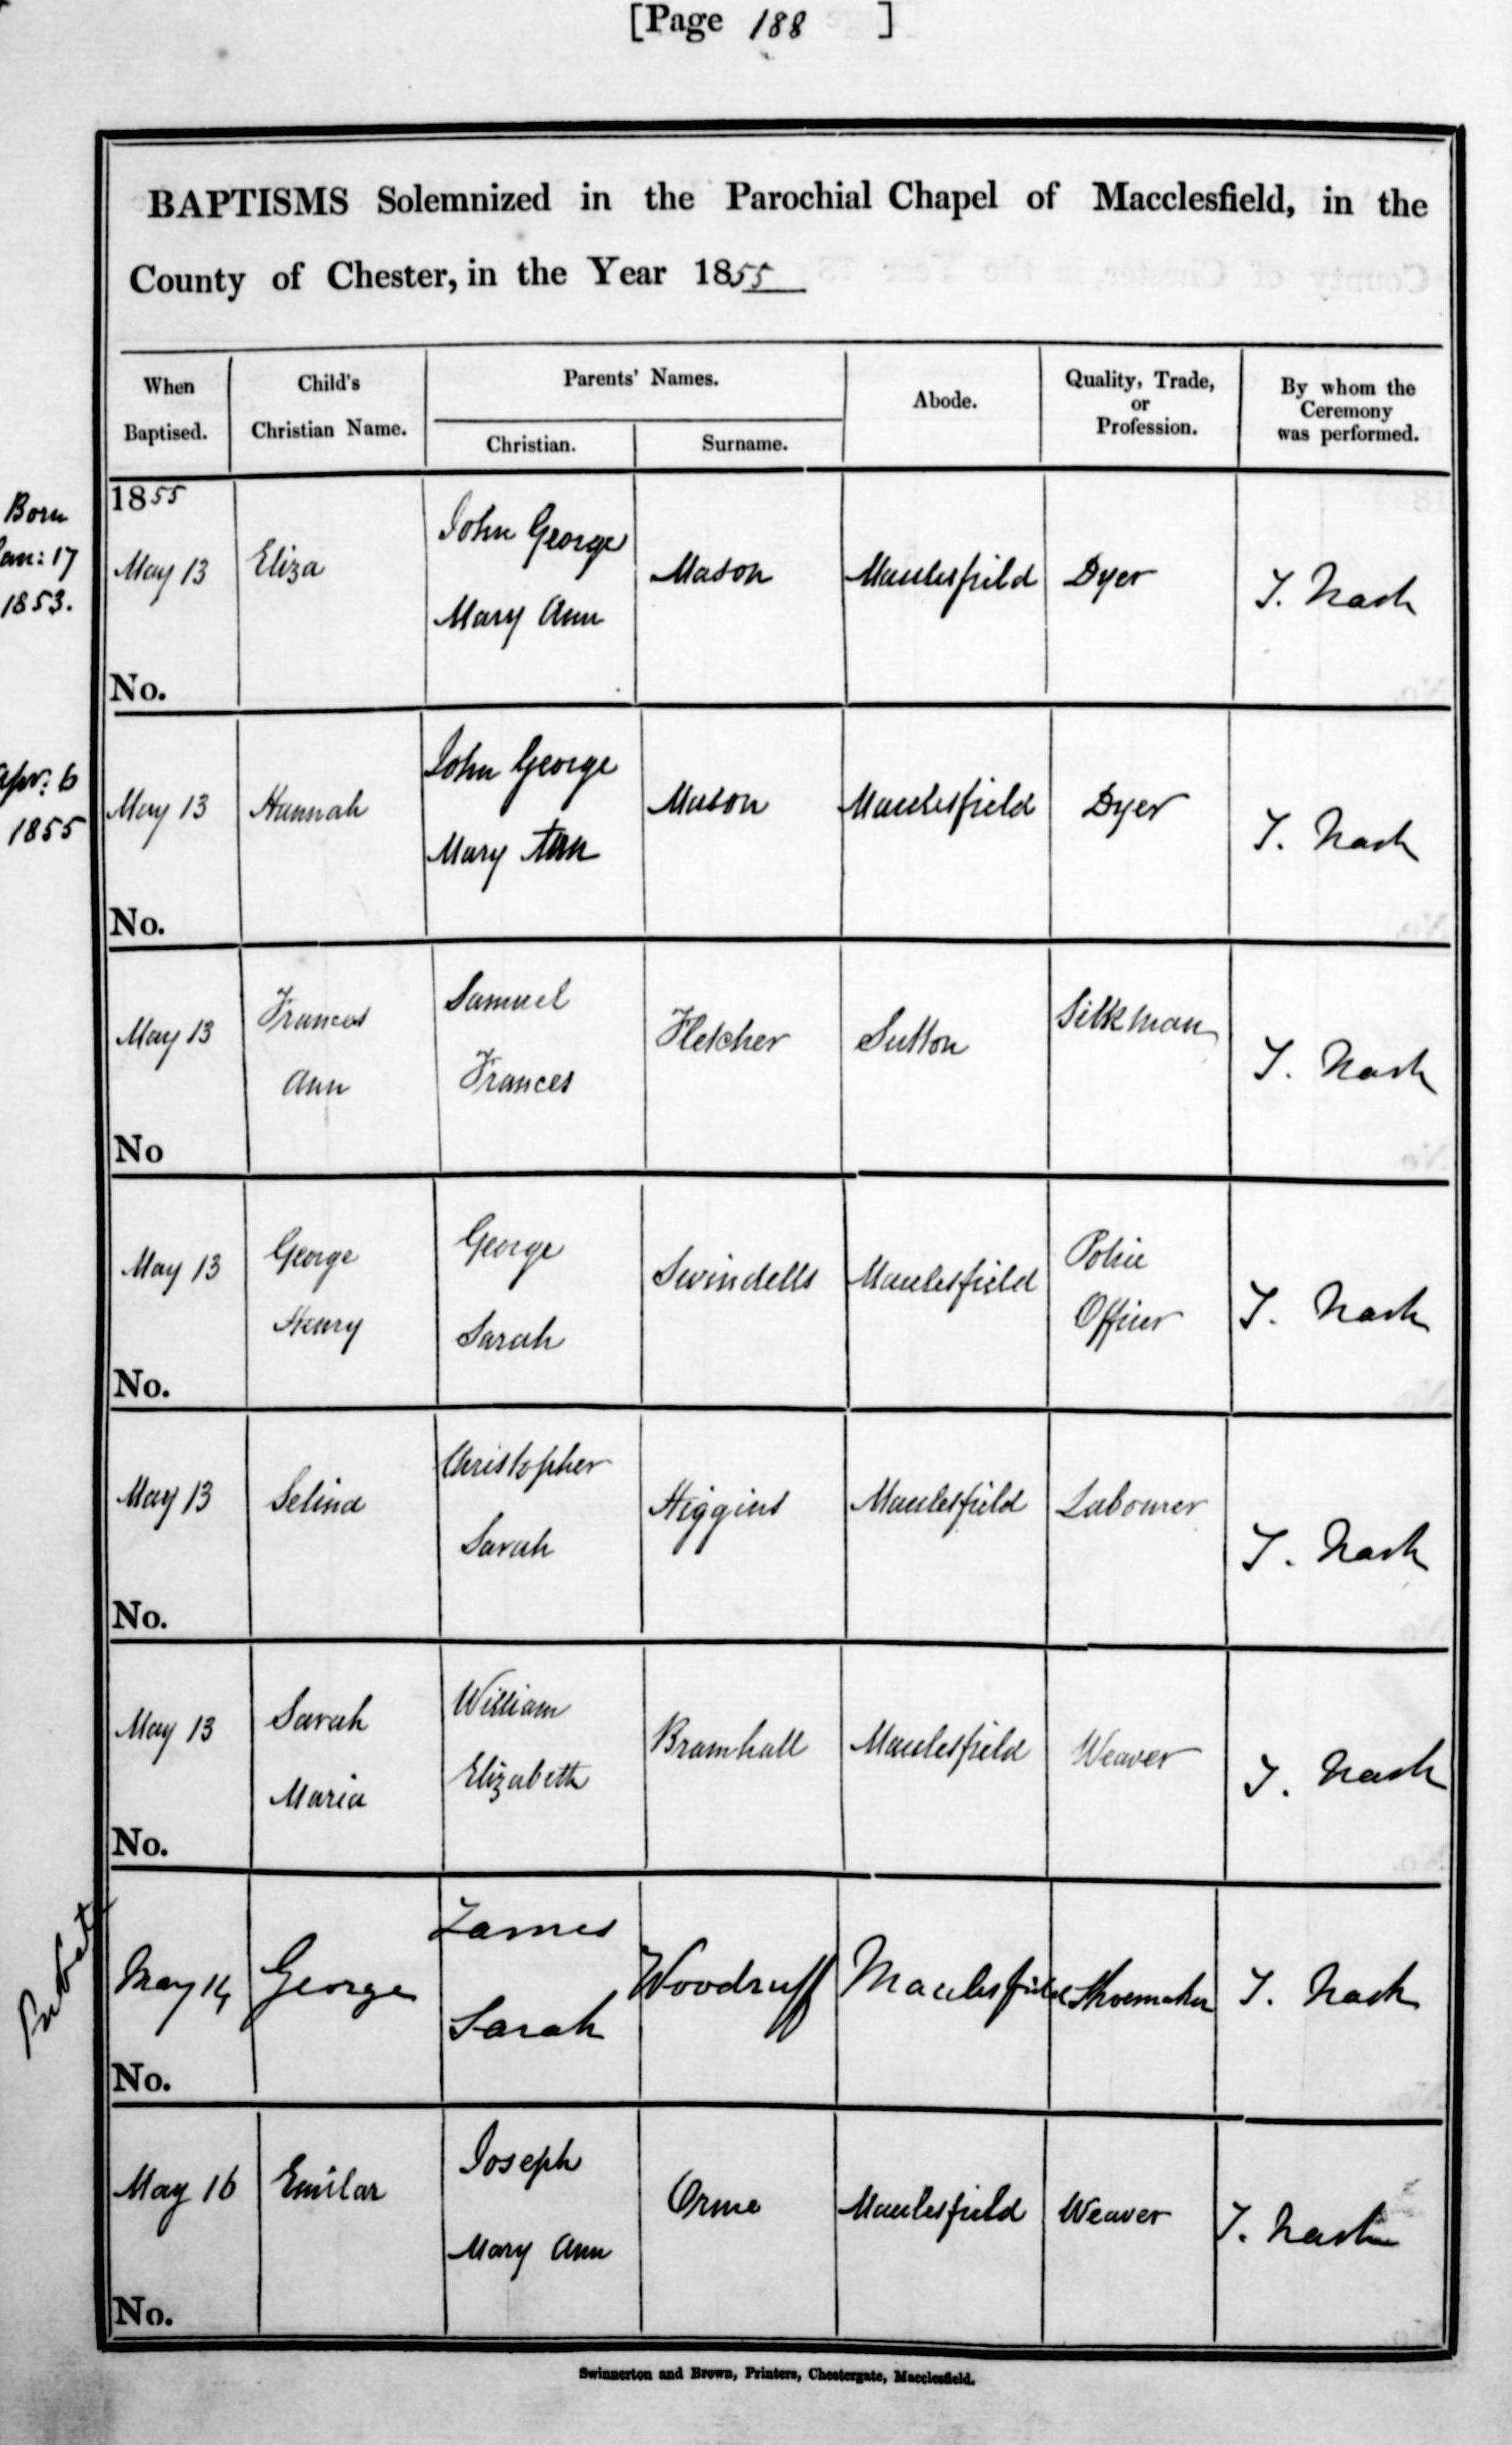 [Page 188 ]
BAPTISMS Solemnized in the Parochial Chapel of Macclesfield, in the
County of Chester, in the Year 1855
When Baptised. Child's Christian Name. Parents' Names. Christian. Surname. Abode. Quality, Trade, or Profession. By whom the Ceremony was performed.
Born
Jan: 17
1853.
1855
May 13 Eliza John George Mary Ann Mason Macclesfield Dyer T. Nash
No.
Apr: 6
1855
May 13 Hannah John George Mary Ann Mason Macclesfield Dyer T. Nash
No.
May 13 Frances Ann Samuel Frances Fletcher Sutton Silkman T. Nash
No
May 13 George Henry George Sarah Swindells Macclesfield Police Officer T. Nash
No.
May 13 Selina Christopher Sarah Higgins Macclesfield Labourer T. Nash
No.
May 13 Sarah Maria William Elizabeth Bramhall Macclesfield Weaver T. Nash
No.
Private
May 14 George James Sarah Woodruff Macclesfield Shoemaker T. Nash
No.
May 16 Emilar Joseph Mary Ann Orme Macclesfield Weaver T. Nash
No.
Swinnerton and Brown, Printers, Chestergate, Macclesfield.